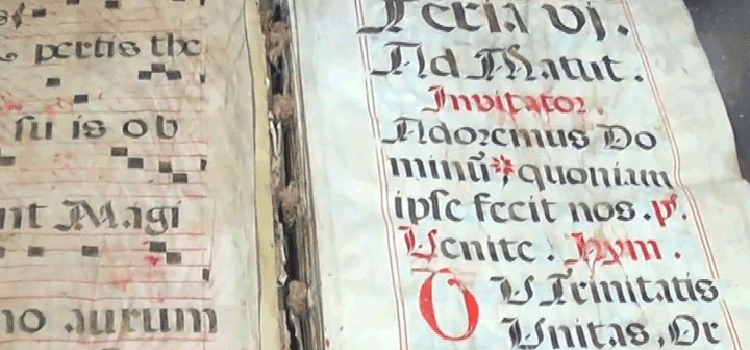 pertis the
ſu is ob
nt Magi
no aurum
Feria vj.
Ad Matut.
Invitator.
Adoremus Do
minū* quoniam
ipſe fecit nos. pſ.
Venite. hym.
TU Trinitatis
Unitas, Or